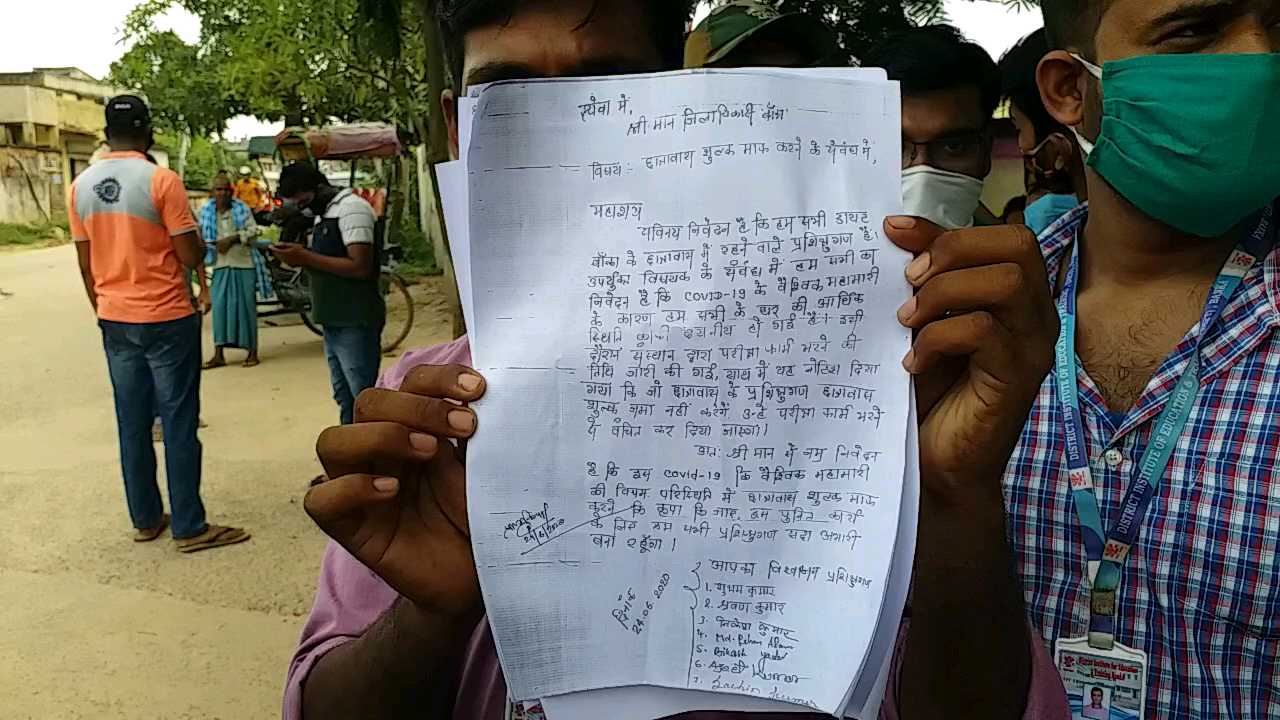 सेवा में,
श्री मान जिलाधिकारी बाँका
विषय:- छात्रावास शुल्क माफ करने के संबंध में,
महाशय
सविनय निवेदन है कि हम सभी डायट
बाँका के छात्रावास में रहने वाले प्रशिक्षुगण है।
उपर्युक्त विषयक के संबंध में हम सभी का
निवेदन है कि COVID-19 के वैश्विक महामारी
के कारण हम सभी के घर की आर्थिक
स्थिति काफी दयनीय हो गई है। इसी
दौरान संस्थान द्वारा परीक्षा फार्म भरने की
तिथि जारी की गई, साथ में यह नोटिस दिया
गया कि जो छात्रावास के प्रशिक्षुगण छात्रावास
शुल्क जमा नहीं करेंगे उन्हे परीक्षा फार्म भरने
से वंचित कर दिया जाएगा।
अतः श्री मान से नम्र निवेदन
है कि इस covid-19 कि वैश्विक महामारी
की विषम परिस्थिति में छात्रावास शुल्क माफ
करने कि कृपा कि जाए, इस पुनित कार्य
के लिए हम सभी प्रशिक्षुगण सदा आभारी
बना रहूँगा।
आपका विश्वासभाजन प्रशिक्षुगण
दिनांक
24.06.2020
1. शुभम कुमार
2. श्रवण कुमार
3. मिथिलेश कुमार
4. Md. Rehan Alam
5. Bikash Yadav
6. Kumar
7. Sachin Kumar
DISTRICT INSTITUTE OF EDUCATION
DISTRICT INSTITUTE OF EDUCATION &
BANKA
District Institute for Education